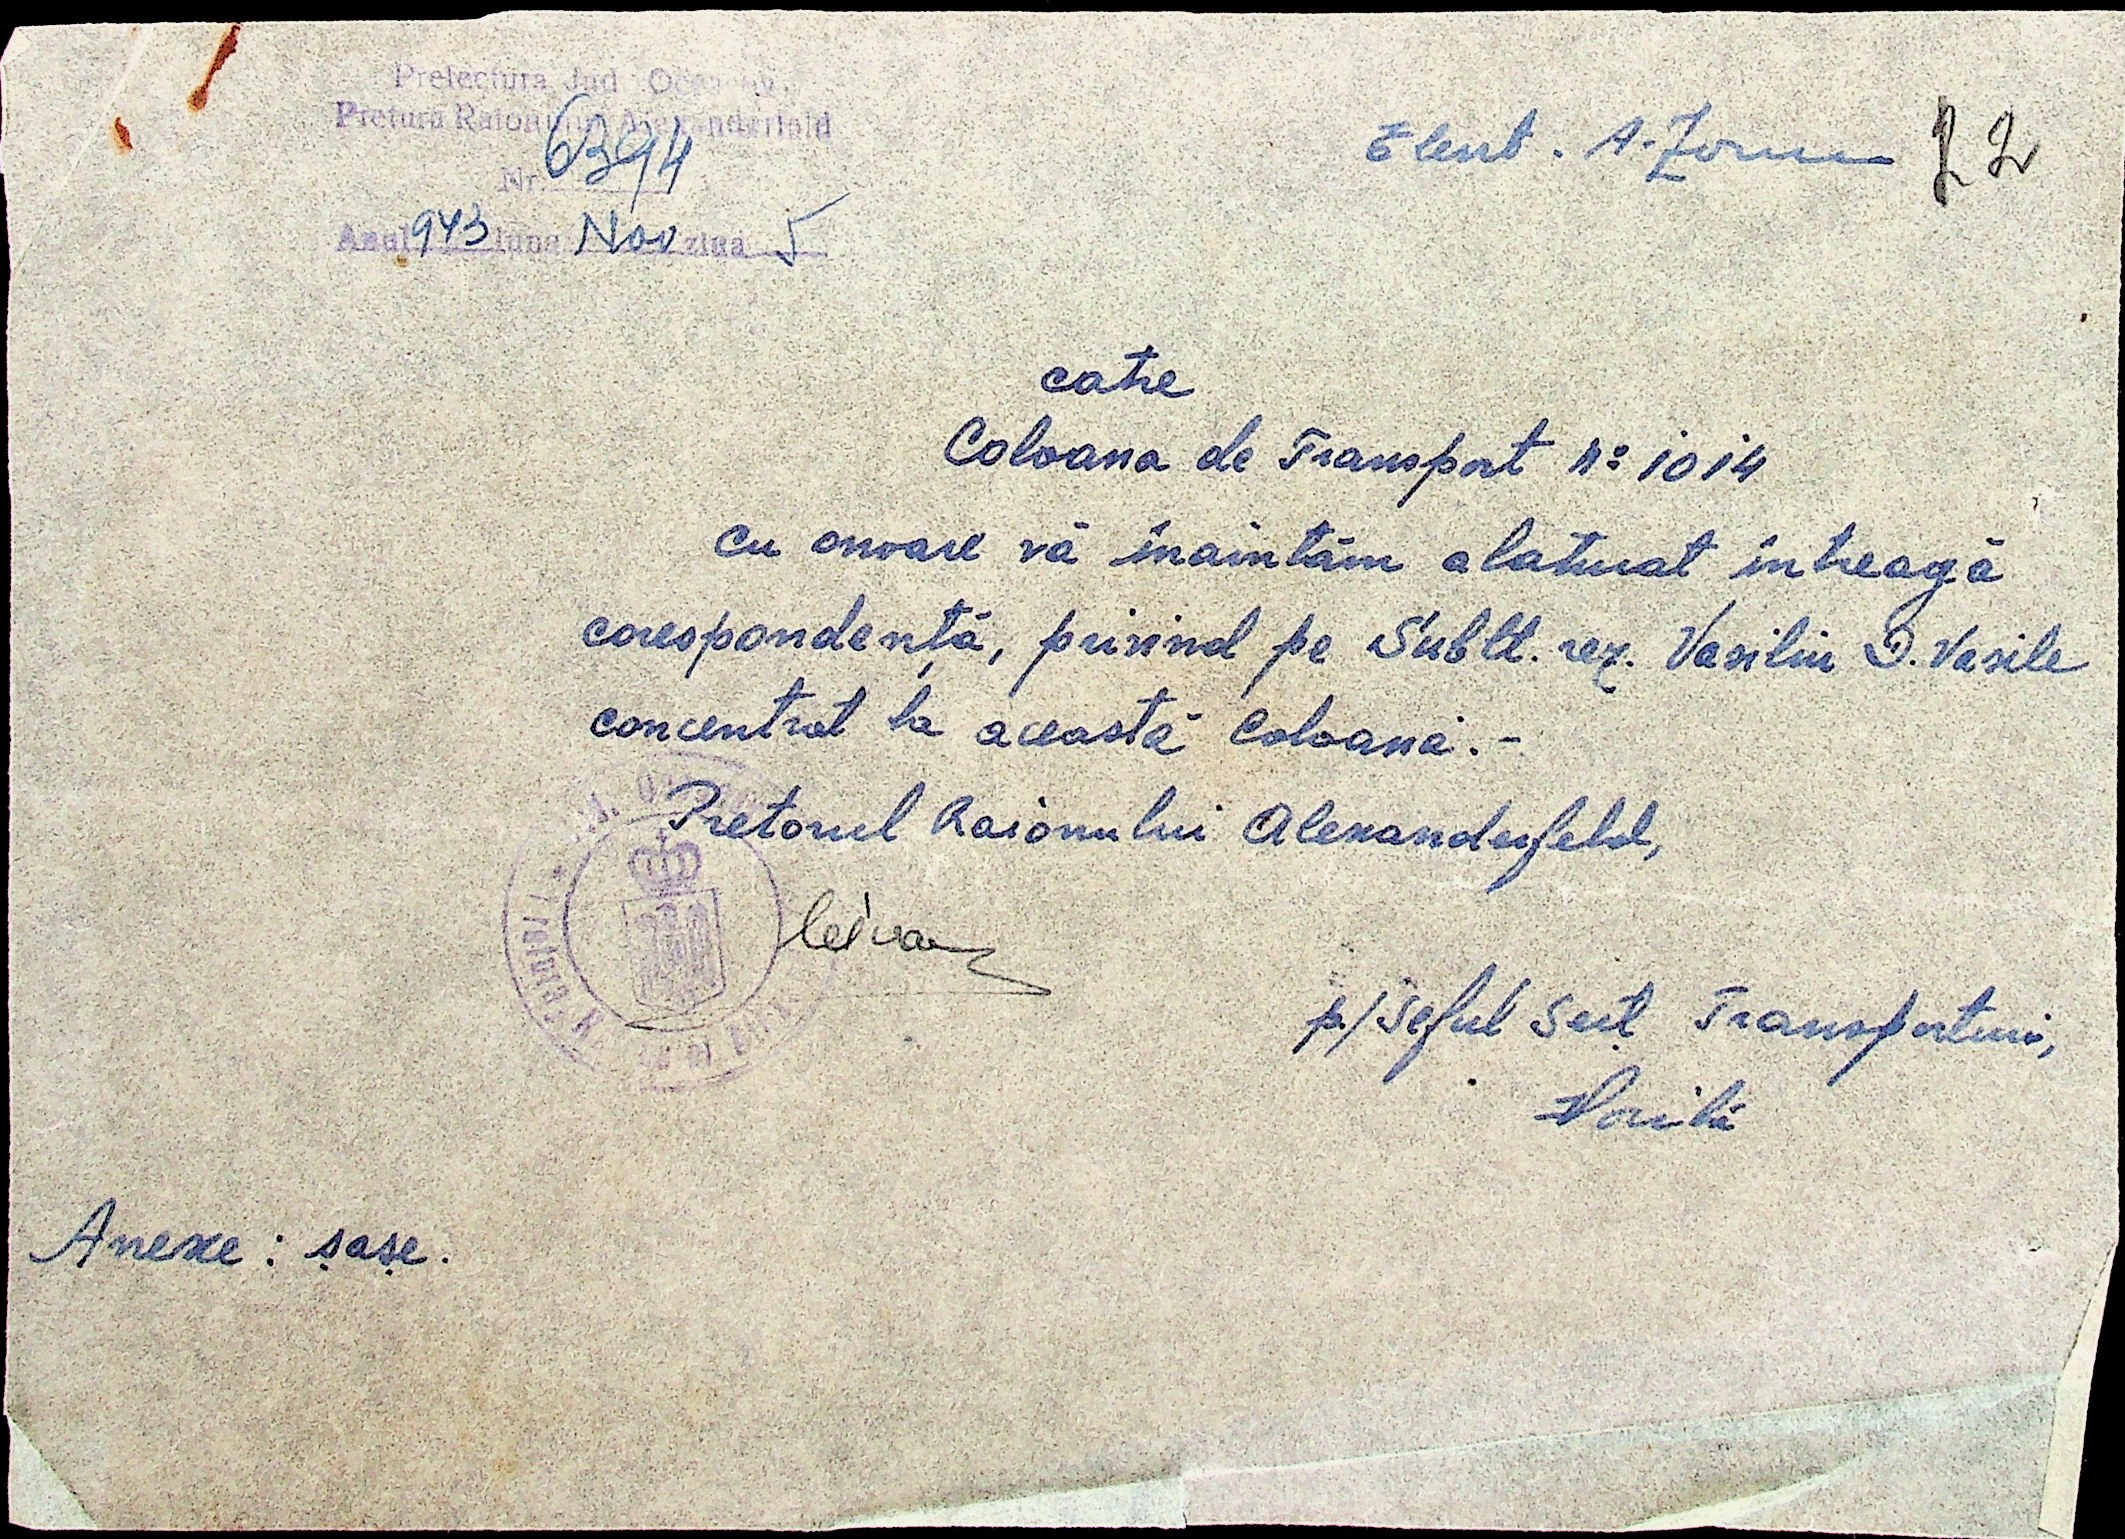 Prefectura Jud Oceacov
Pretura Raionului Alexanderfeld
Nr. 6394
Anul 943 luna Nov ziua 5
22
catre
Coloana de Transport No 1014
cu onoare vă înaintăm alaturat întreagă
corespondență, privind pe Sublt. rez. Vasiliu D. Vasile
concentrat la această Coloană.-
Pretorul Raionului Alexanderfeld,
p/Seful Serv. Transporturi,
Anexe: șase.